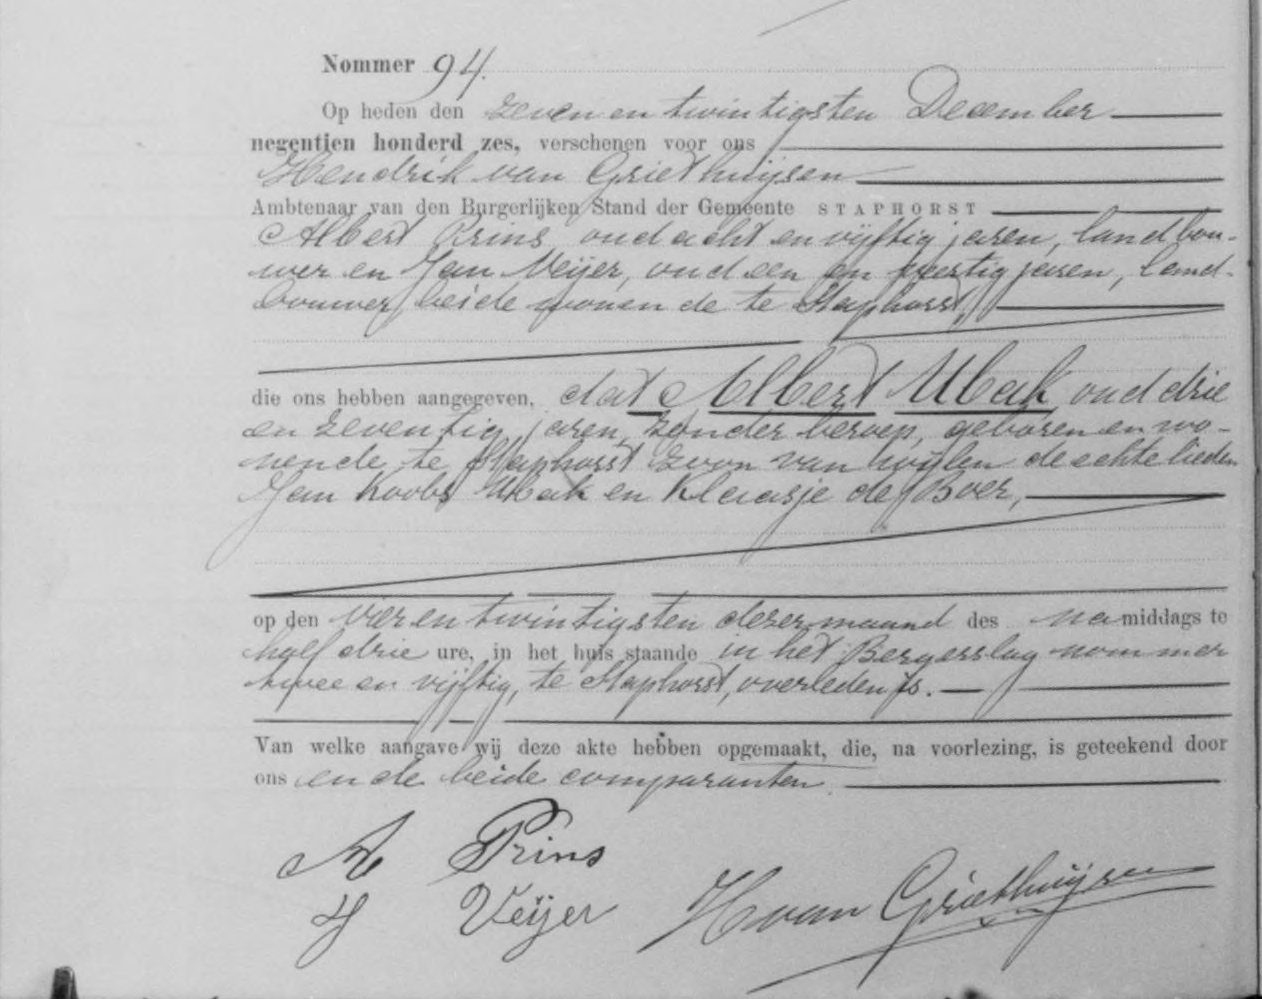 Nommer 94.
Op heden den zeven en twintigsten December
negentien honderd zes, verschenen voor ons
Hendrik van Griethuijsen
Ambtenaar van den Burgerlijken Stand der Gemeente STAPHORST
Albert Prins, oud acht en vijftig jaren, landbou-
wer en Jan Veijer, oud een en veertig jaren, land-
bouwer, beide wonende te Staphorst,
die ons hebben aangegeven, dat Albert Mbak oud drie
en zeventig jaren, zonder beroep, geboren en wo-
nende te Staphorst zoon van wijlen de echtelieden
Jan Koobs Mbak en Klaasje de Boer,
op den vier en twintigsten dezer maand des namiddags te
half drie ure, in het huis staande in het Bergerslag nommer
twee en vijftig, te Staphorst, overleden is.
Van welke aangave wij deze akte hebben opgemaakt, die, na voorlezing, is geteekend door
ons en de beide comparanten.
A Prins
J Veijer
H van Griethuijsen